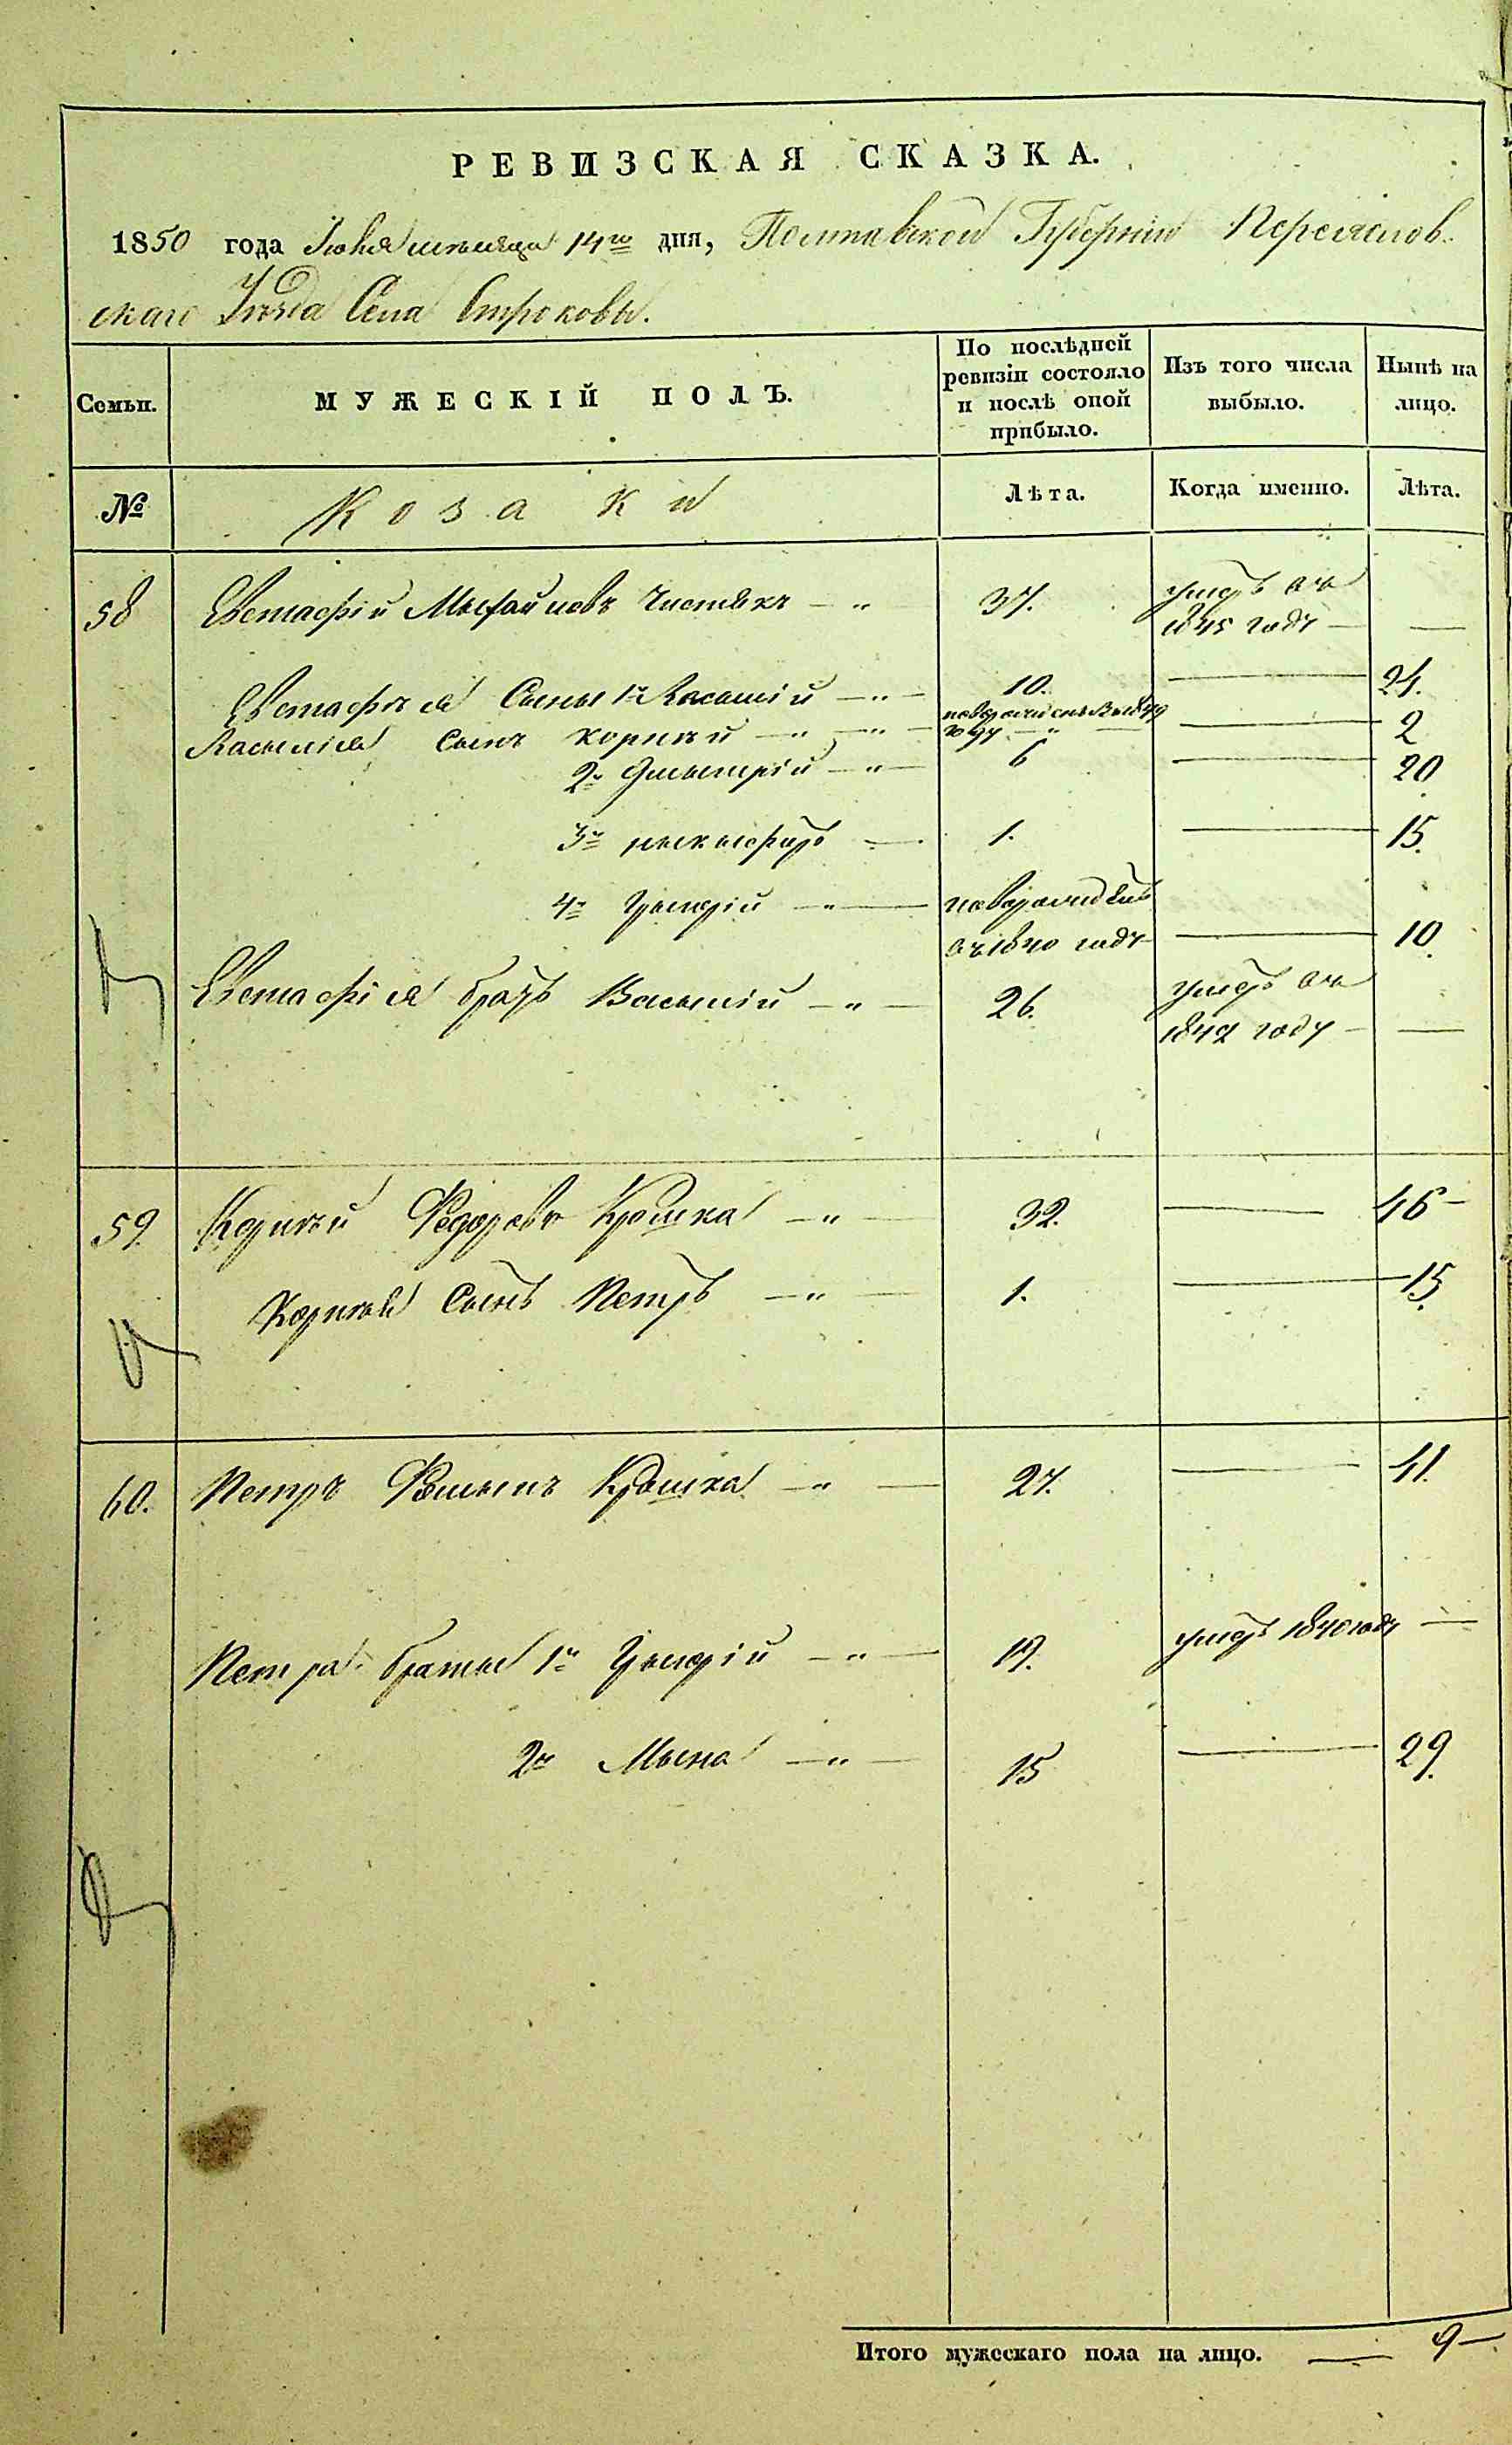 РЕВИЗСКАЯ СКАЗКА.
1850 года Июня месяца 14го дня, Полтавской Губернии Переяслов-
скаго Уезда Села Строковы.
Семьи. МУЖЕСКІЙ ПОЛЪ. По послѣдней ревизіи состояло и послѣ оной прибыло. Изъ того числа выбыло. Нынѣ на лицо.
№ Козаки Лѣта. Когда именно. Лѣта.
58 Евстафій Михайловъ Чистякъ — " 37. умеръ въ 1845 году — —
Евстафія Сыны 1й Касьянъ — " — 10. — 24.
сынъ Корнѣй — " — новорожденъ въ 1849 году — " — 2
2й Дмытрій — " — 6 — 20
3й Ныкыфоръ — 1. — 15.
4й Грыгорій — " — новорожденъ въ 1840 году — 10.
Евстафія братъ Васылій — " — 26. умеръ въ 1842 году — —
59. Корнѣй Федоровъ Крошка — " — 32. — 46 —
Корнѣя Сынъ Петръ — " — 1. — 15.
60. Петръ Фомынъ Крошка — " — 27. — 41.
Петра братья 1й Грыгорій — " — 19. умеръ 1840 году —
2й Мына — " — 15 — 29.
Итого мужескаго пола на лицо. — 9 —